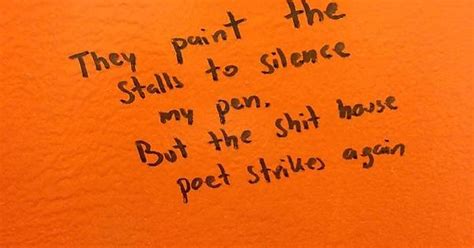 They paint the
stalls to silence
my pen.
But the shit house
poet strikes again